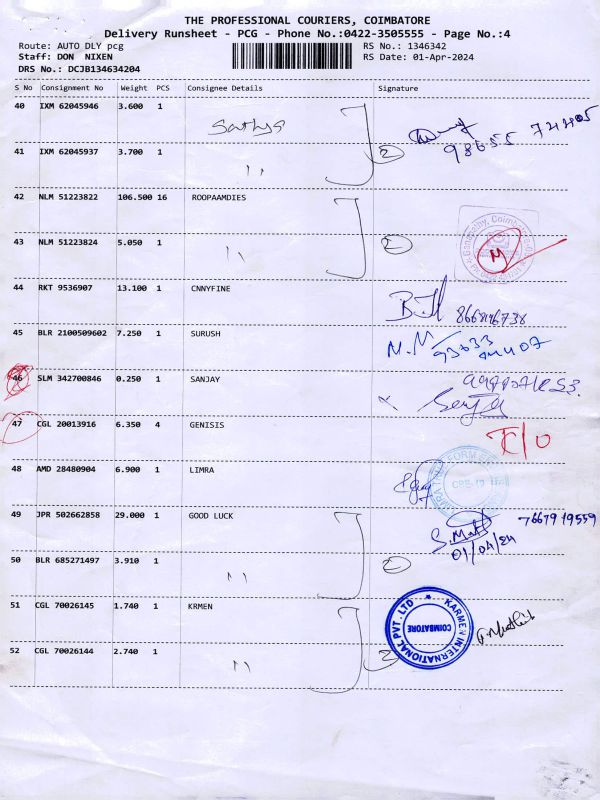 THE PROFESSIONAL COURIERS, COIMBATORE
Delivery Runsheet - PCG - Phone No.:0422-3505555 - Page No.:4
Route: AUTO DLY pcg RS No.: 1346342
Staff: DON NIXEN RS Date: 01-Apr-2024
DRS No.: DCJB134634204
S No Consignment No Weight PCS Consignee Details Signature
40 IXM 62045946 3.600 1 Sathys
41 IXM 62045937 3.700 1 ,, 2
98655
42 NLM 51223822 106.500 16 ROOPAAMDIES
43 NLM 51223824 5.050 1 ,, 2
M
44 RKT 9536907 13.100 1 CNNYFINE
45 BLR 2100509602 7.250 1 SURUSH M.M
46 SLM 342700846 0.250 1 SANJAY
47 CGL 20013916 6.350 4 GENISIS
48 AMD 28480904 6.900 1 LIMRA
49 JPR 502662858 29.000 1 GOOD LUCK 7667919559
01/04/24
50 BLR 685271497 3.910 1 ,, 2
51 CGL 70026145 1.740 1 KRMEN
KARMEN INTERNATIONAL PVT. LTD
COIMBATORE
52 CGL 70026144 2.740 1 ,, 2